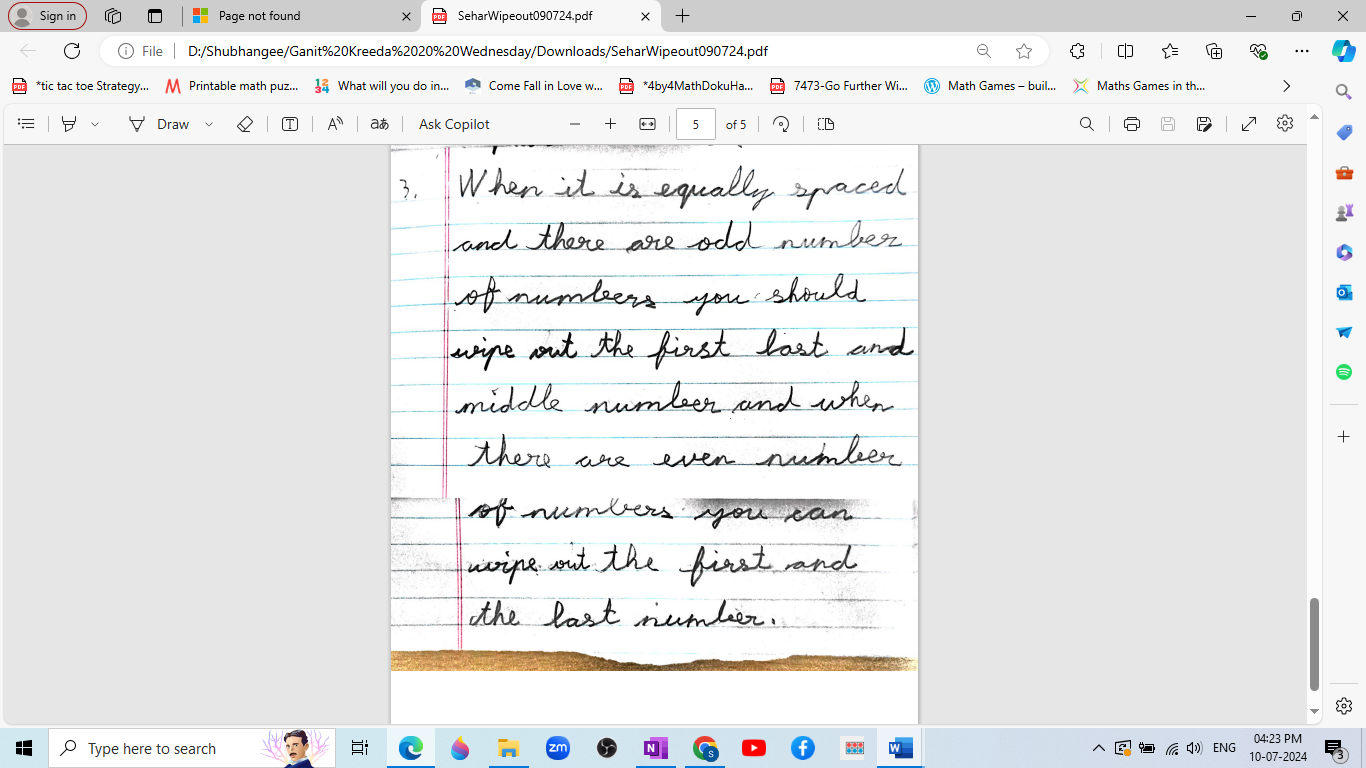 Sign in
Page not found
SeharWipeout090724.pdf
File
D:/Shubhangee/Ganit%20Kreeda%2020%20Wednesday/Downloads/SeharWipeout090724.pdf
*tic tac toe Strategy...
Printable math puz...
What will you do in...
Come Fall in Love w...
*4by4MathDokuHa...
7473-Go Further Wi...
Math Games – buil...
Maths Games in th...
Draw
Ask Copilot
5
of 5
3. When it is equally spaced
and there are odd number
of numbers you should
wipe out the first last and
middle number and when
there are even number
of numbers you can
wipe out the first and
the last number.
Type here to search
ENG
04:23 PM
10-07-2024
3